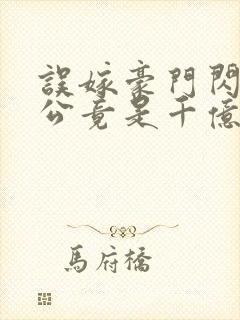 誤嫁豪門閃
公竟是千億
馬府橋